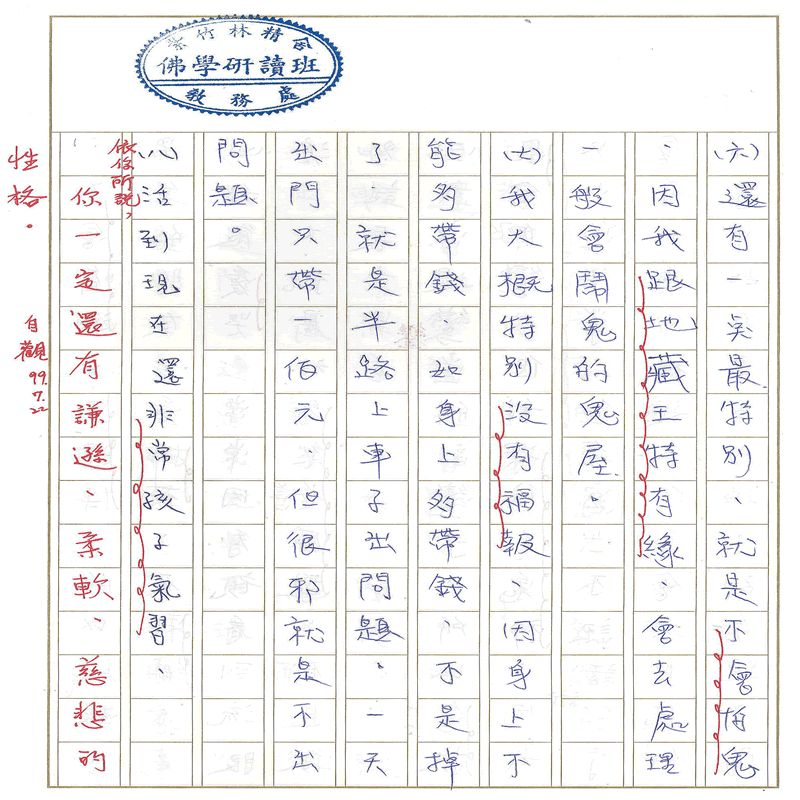 紫竹林精舍
佛學研讀班
教務處
(六)還有一点最特別、就是不會怕鬼
、因我跟地藏王特有緣、會去處理
一般會鬧鬼的鬼屋。
(七)我大概特別沒有福報、因身上不
能多帶錢、如身上多帶錢、不是掉
了、就是半路上車子出問題、一天
出門只帶一佰元、但很邪就是不出
問題。
(八)活到現在還非常孩子氣習、
依你所說，
你一定還有謙遜、柔軟、慈悲的
性格。
自觀 99.7.22